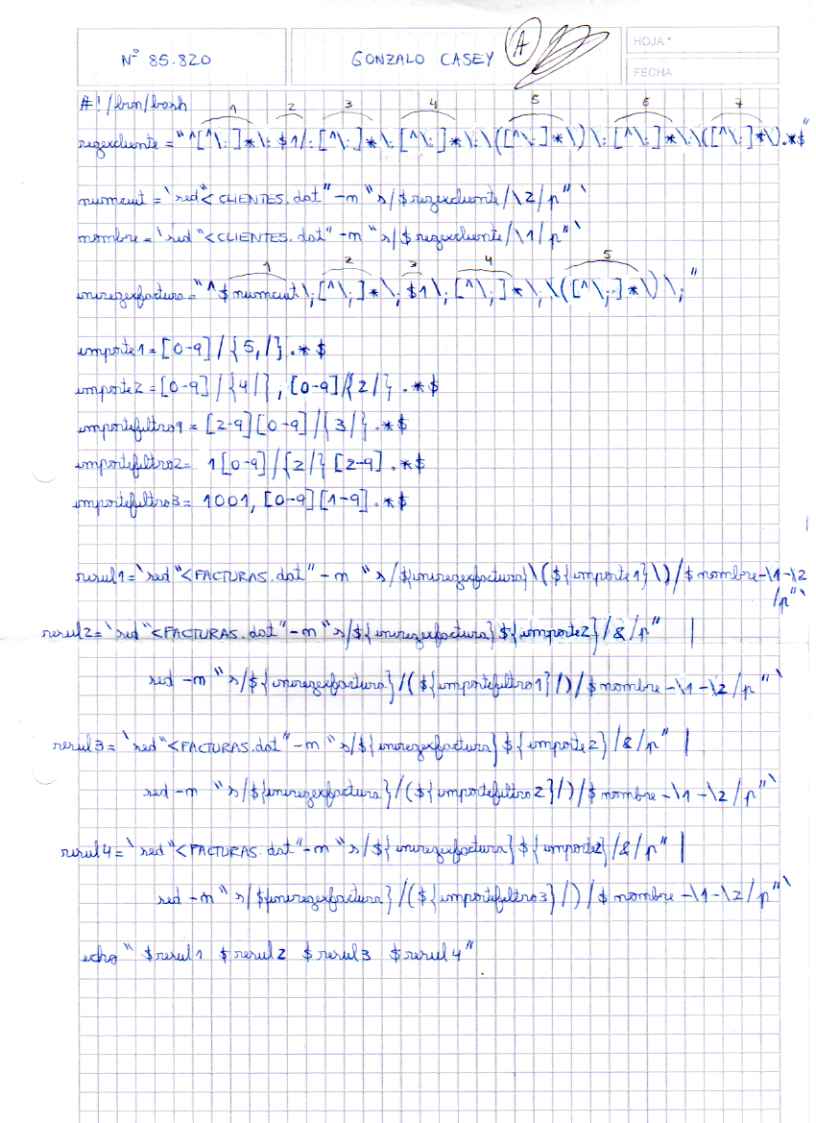 Nº 85.820
GONZALO CASEY
A
HOJA º
FECHA
#!/bin/bash
1 2 3 4 5 6 7
regexcliente = "^[^\:]*\: $1/: [^\:]*\: [^\:]*\:\([^\:]*\)\: [^\:]*\:\([^\:]*\).*$"
numcuit = `sed "< CLIENTES.dat" -n "s/$regexcliente/\2/p"`
nombre = `sed "<CLIENTES.dat" -n "s/$regexcliente/\1/p"`
1 2 3 4 5
iniregexfactura = "^$numcuit\;[^\;]*\;$1\;[^\;]*\;\([^\;]*\)\;"
importe1 = [0-9]/{5,/}.*$
importe2 = [0-9]/{4/},[0-9]/{2/}.*$
importefiltro1 = [2-9][0-9]/{3/}.*$
importefiltro2 = 1[0-9]/{2/}[2-9].*$
importefiltro3 = 1001,[0-9][1-9].*$
resul1 = `sed "<FACTURAS.dat" -n "s/${iniregexfactura}\(${importe1}\)/$nombre-\1-\2
/p"`
resul2 = `sed "<FACTURAS.dat" -n "s/${iniregexfactura}${importe2}/&/p" |
sed -n "s/${iniregexfactura}/(${importefiltro1}/)/$nombre-\1-\2/p"`
resul3 = `sed "<FACTURAS.dat" -n "s/${iniregexfactura}${importe2}/&/p" |
sed -n "s/${iniregexfactura}/(${importefiltro2}/)/$nombre-\1-\2/p"`
resul4 = `sed "<FACTURAS.dat" -n "s/${iniregexfactura}${importe2}/&/p" |
sed -n "s/${iniregexfactura}/(${importefiltro3}/)/$nombre-\1-\2/p"`
echo "$resul1 $resul2 $resul3 $resul4"